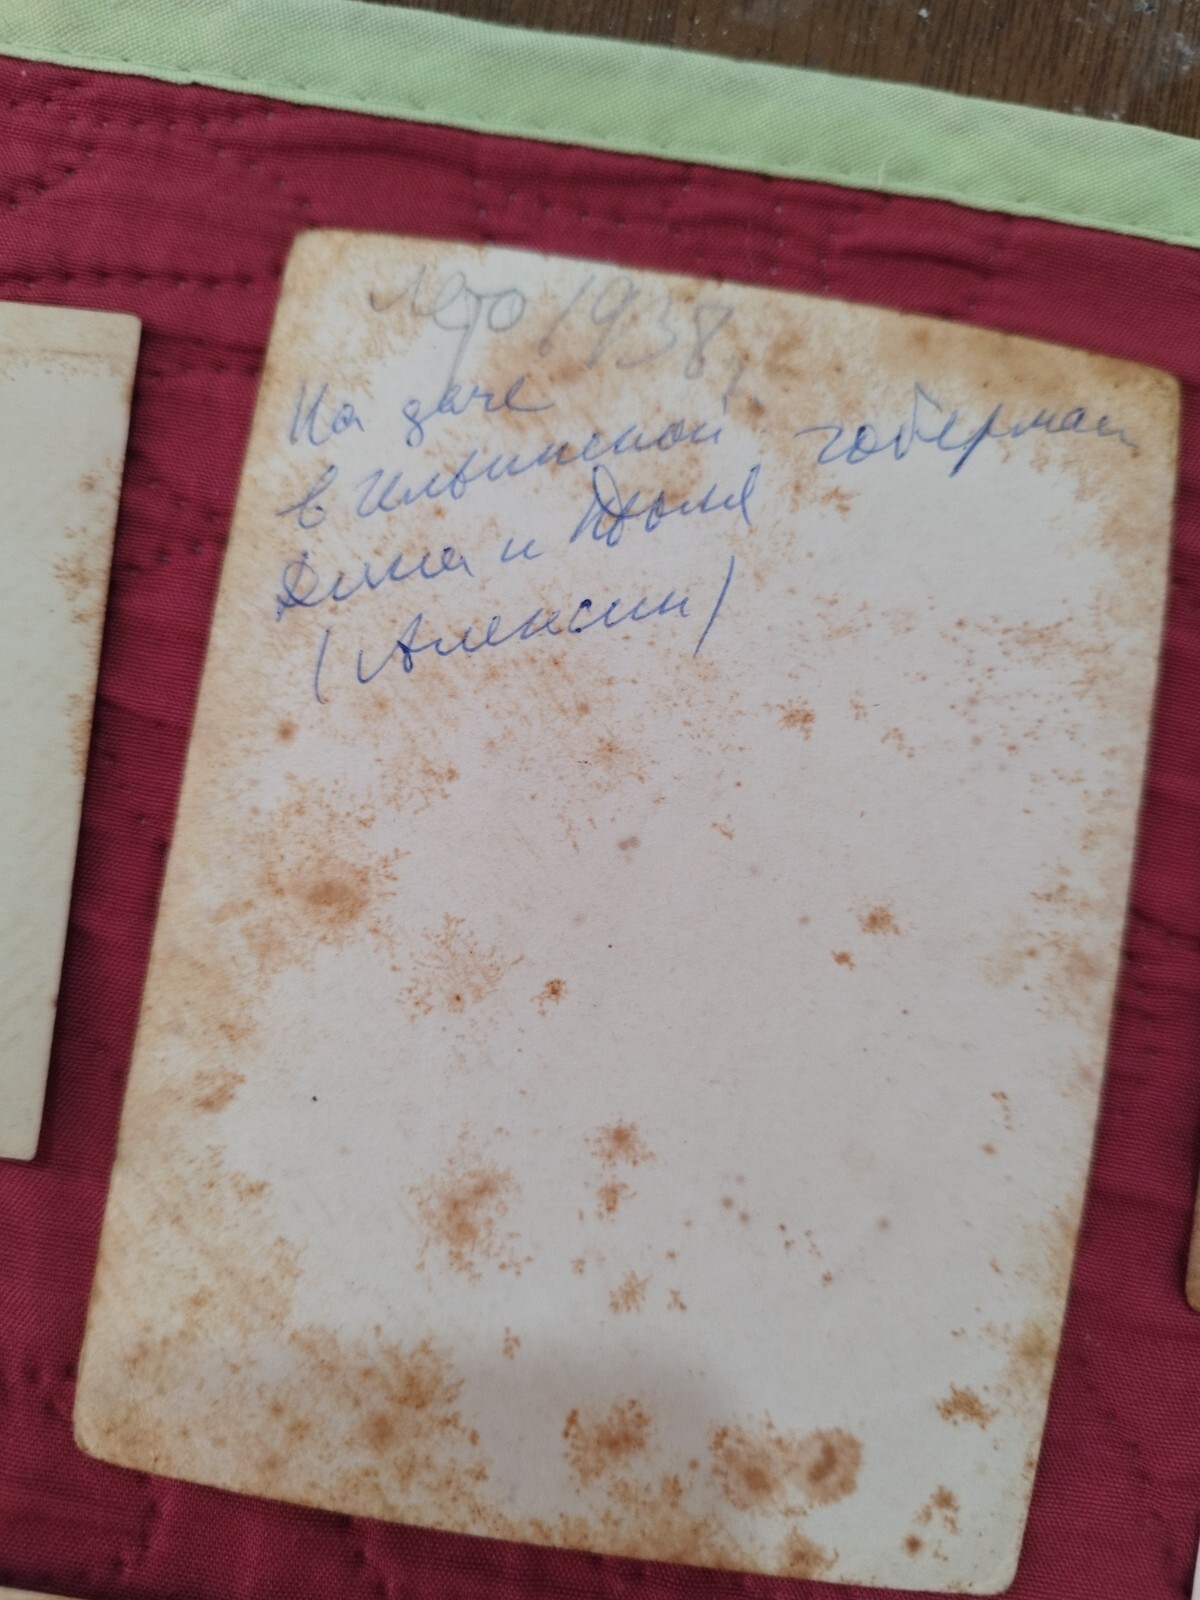 Лето 1938,
На даче
в Ильинской Гоберман
Дина и Юля
(Алексин)